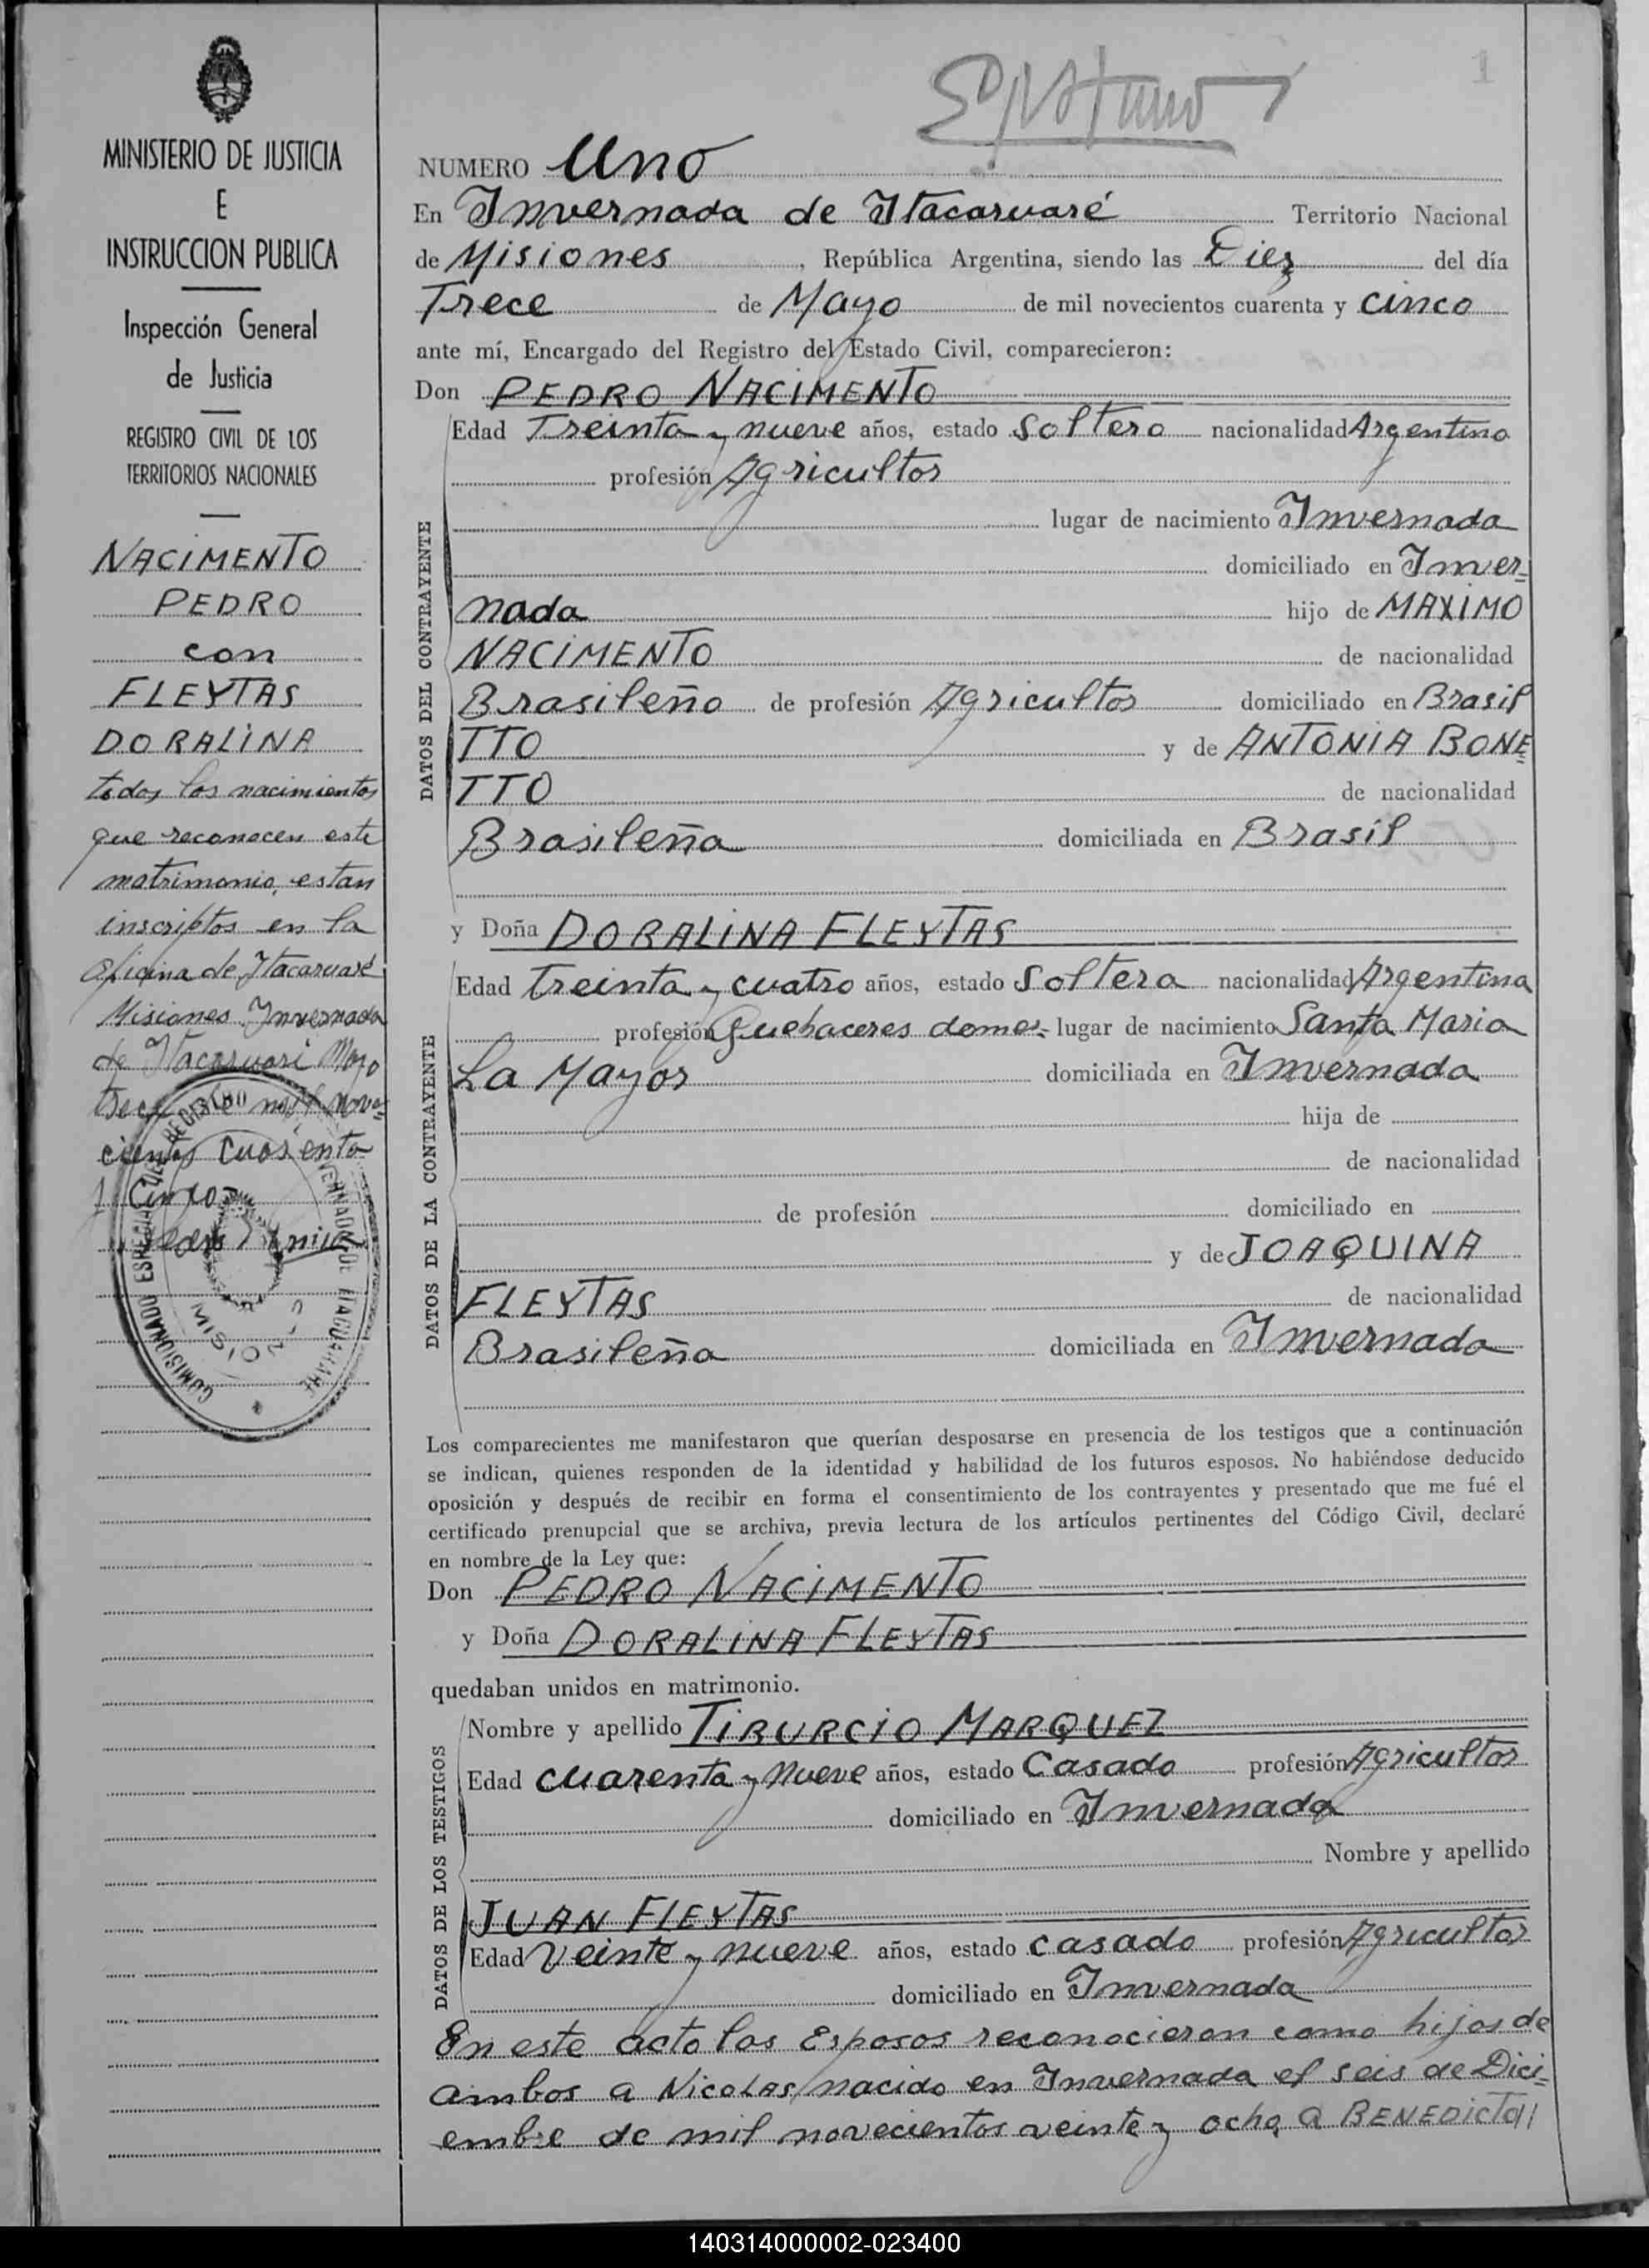 1
NUMERO Uno
En Invernada de Itacaruaré Territorio Nacional
de Misiones, República Argentina, siendo las Diez del día
Trece de Mayo de mil novecientos cuarenta y cinco
ante mí, Encargado del Registro del Estado Civil, comparecieron:
Don PEDRO NACIMENTO
DATOS DEL CONTRAYENTE
Edad Treinta y nueve años, estado Soltero nacionalidad Argentino
profesión Agricultor
lugar de nacimiento Invernada
domiciliado en Inver=
nada hijo de MAXIMO
NACIMENTO de nacionalidad
Brasileño de profesión Agricultor domiciliado en Brasil
TTO y de ANTONIA BONE=
TTO de nacionalidad
Brasileña domiciliada en Brasil
y Doña DORALINA FLEYTAS
DATOS DE LA CONTRAYENTE
Edad treinta y cuatro años, estado Soltera nacionalidad Argentina
profesión Quehaceres domes= lugar de nacimiento Santa Maria
La Mayor domiciliada en Invernada
hija de
de nacionalidad
de profesión domiciliado en
y de JOAQUINA
FLEYTAS de nacionalidad
Brasileña domiciliada en Invernada
Los comparecientes me manifestaron que querían desposarse en presencia de los testigos que a continuación
se indican, quienes responden de la identidad y habilidad de los futuros esposos. No habiéndose deducido
oposición y después de recibir en forma el consentimiento de los contrayentes y presentado que me fué el
certificado prenupcial que se archiva, previa lectura de los artículos pertinentes del Código Civil, declaré
en nombre de la Ley que:
Don PEDRO NACIMENTO
y Doña DORALINA FLEYTAS
quedaban unidos en matrimonio.
DATOS DE LOS TESTIGOS
Nombre y apellido TIBURCIO MARQUEZ
Edad cuarenta y Nueve años, estado Casado profesión Agricultor
domiciliado en Invernada
Nombre y apellido
JUAN FLEYTAS
Edad Veinte y nueve años, estado casado profesión Agricultor
domiciliado en Invernada
En este acto los Esposos reconocieron como hijos de
ambos a Nicolas, nacido en Invernada el seis de Dici=
embre de mil novecientos veinte y ocho, a BENEDICTA
MINISTERIO DE JUSTICIA
E
INSTRUCCION PUBLICA
Inspección General
de Justicia
REGISTRO CIVIL DE LOS
TERRITORIOS NACIONALES
NACIMENTO
PEDRO
con
FLEYTAS
DORALINA
todos los nacimientos
que reconocen este
matrimonio, estan
inscriptos en la
Oficina de Itacaruaré
Misiones Invernada
de Itacaruaré Mayo
trece de mil nove=
cientos cuarenta
y Cinco
COMISIONADO ESPECIAL DEL REGISTRO
MISIONES
140314000002-023400